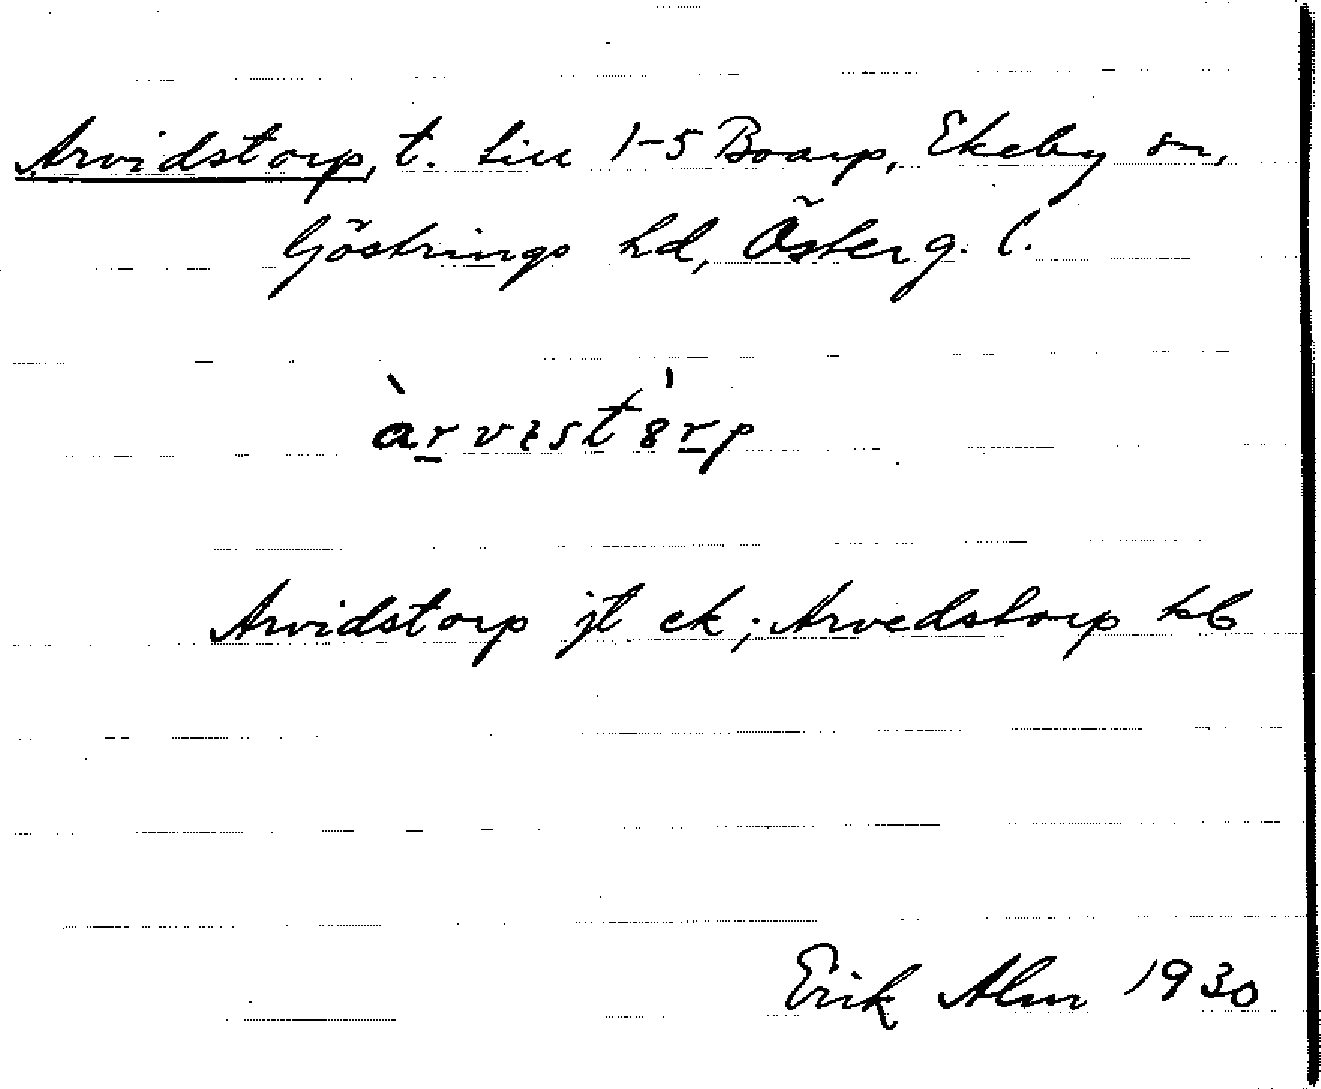 Arvidstorp, t. till 1-5 Boarp, Ekeby sn,
Göstrings hd, Österg. l.
àrvɪstórp
Arvidstorp jt ek; Arvedstorp kb
Erik Alm 1930